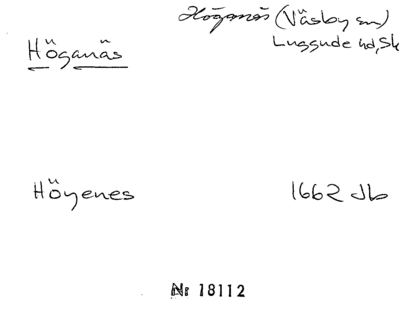 Höganäs (Väsby sn)
Höganäs
Luggude hd, Sk
Höyenes 1662 Jb
Nr 18112